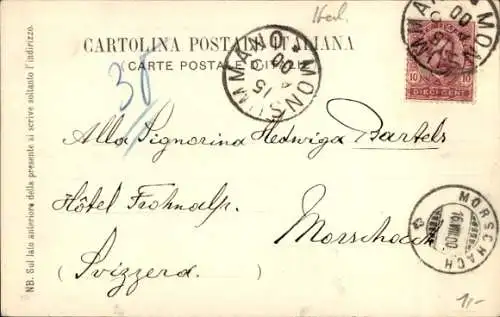 Herl.
CARTOLINA POSTALE ITALIANA
CARTE POSTALE D'ITALIE
38
MONSUMMANO
15
00
10 10
DIECI CENT
Alla Signorina Hedwiga Bartels
Hôtel Frohnalp.
Morschach
(Svizzera.)
MORSCHACH
16.VIII.00
NB. Sul lato anteriore della presente si scrive soltanto l'indirizzo.
1,-